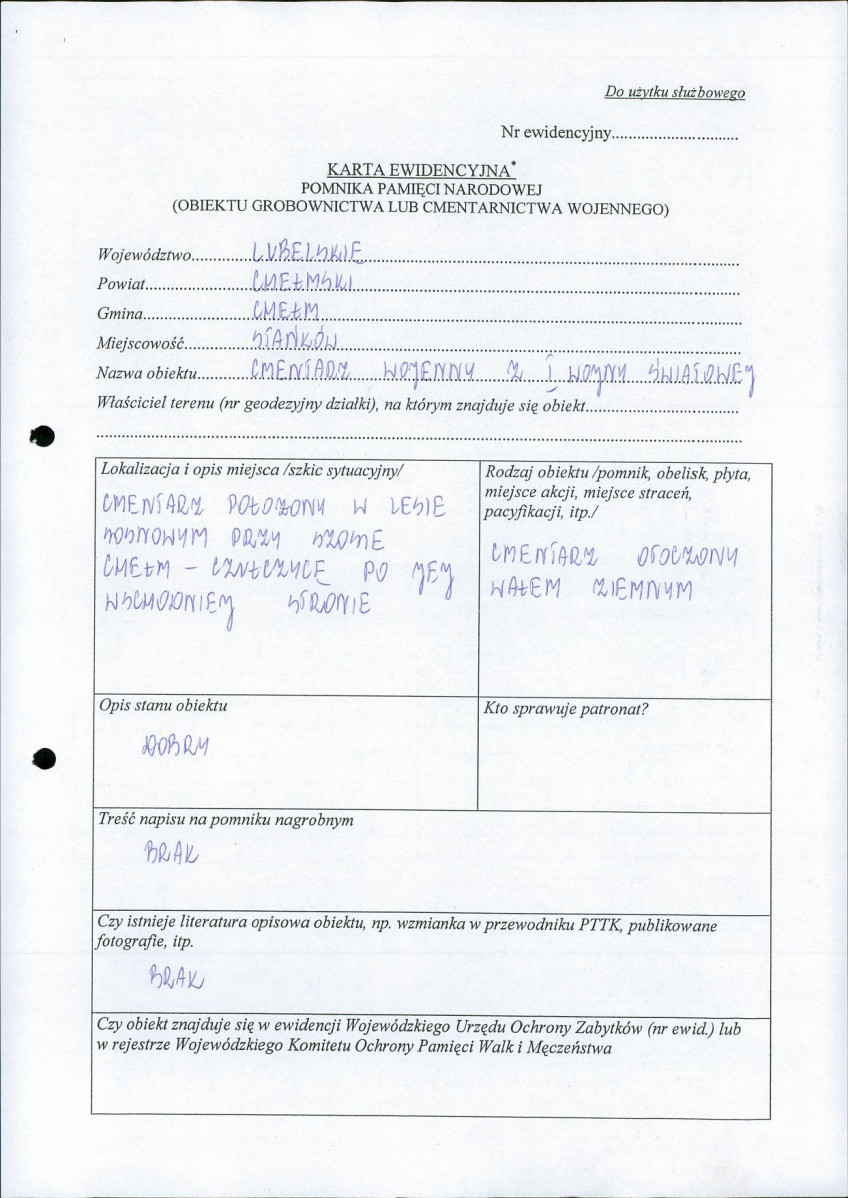 Do użytku służbowego
Nr ewidencyjny..............................
KARTA EWIDENCYJNA*
POMNIKA PAMIĘCI NARODOWEJ
(OBIEKTU GROBOWNICTWA LUB CMENTARNICTWA WOJENNEGO)
Województwo..............LUBELSKIE
Powiat..............CHEŁMSKI
Gmina..............CHEŁM
Miejscowość..............STAŃKÓW
Nazwa obiektu..............CMENTARZ WOJENNY Z I WOJNY ŚWIATOWEJ
Właściciel terenu (nr geodezyjny działki), na którym znajduje się obiekt..............................
Lokalizacja i opis miejsca /szkic sytuacyjny/
CMENTARZ POŁOŻONY W LESIE
SOSNOWYM PRZY SZOSIE
CHEŁM – CZUŁCZYCE PO JEJ
WSCHODNIEJ STRONIE
Rodzaj obiektu /pomnik, obelisk, płyta,
miejsce akcji, miejsce straceń,
pacyfikacji, itp./
CMENTARZ OTOCZONY
WAŁEM ZIEMNYM
Opis stanu obiektu
DOBRY
Kto sprawuje patronat?
Treść napisu na pomniku nagrobnym
BRAK
Czy istnieje literatura opisowa obiektu, np. wzmianka w przewodniku PTTK, publikowane
fotografie, itp.
BRAK
Czy obiekt znajduje się w ewidencji Wojewódzkiego Urzędu Ochrony Zabytków (nr ewid.) lub
w rejestrze Wojewódzkiego Komitetu Ochrony Pamięci Walk i Męczeństwa